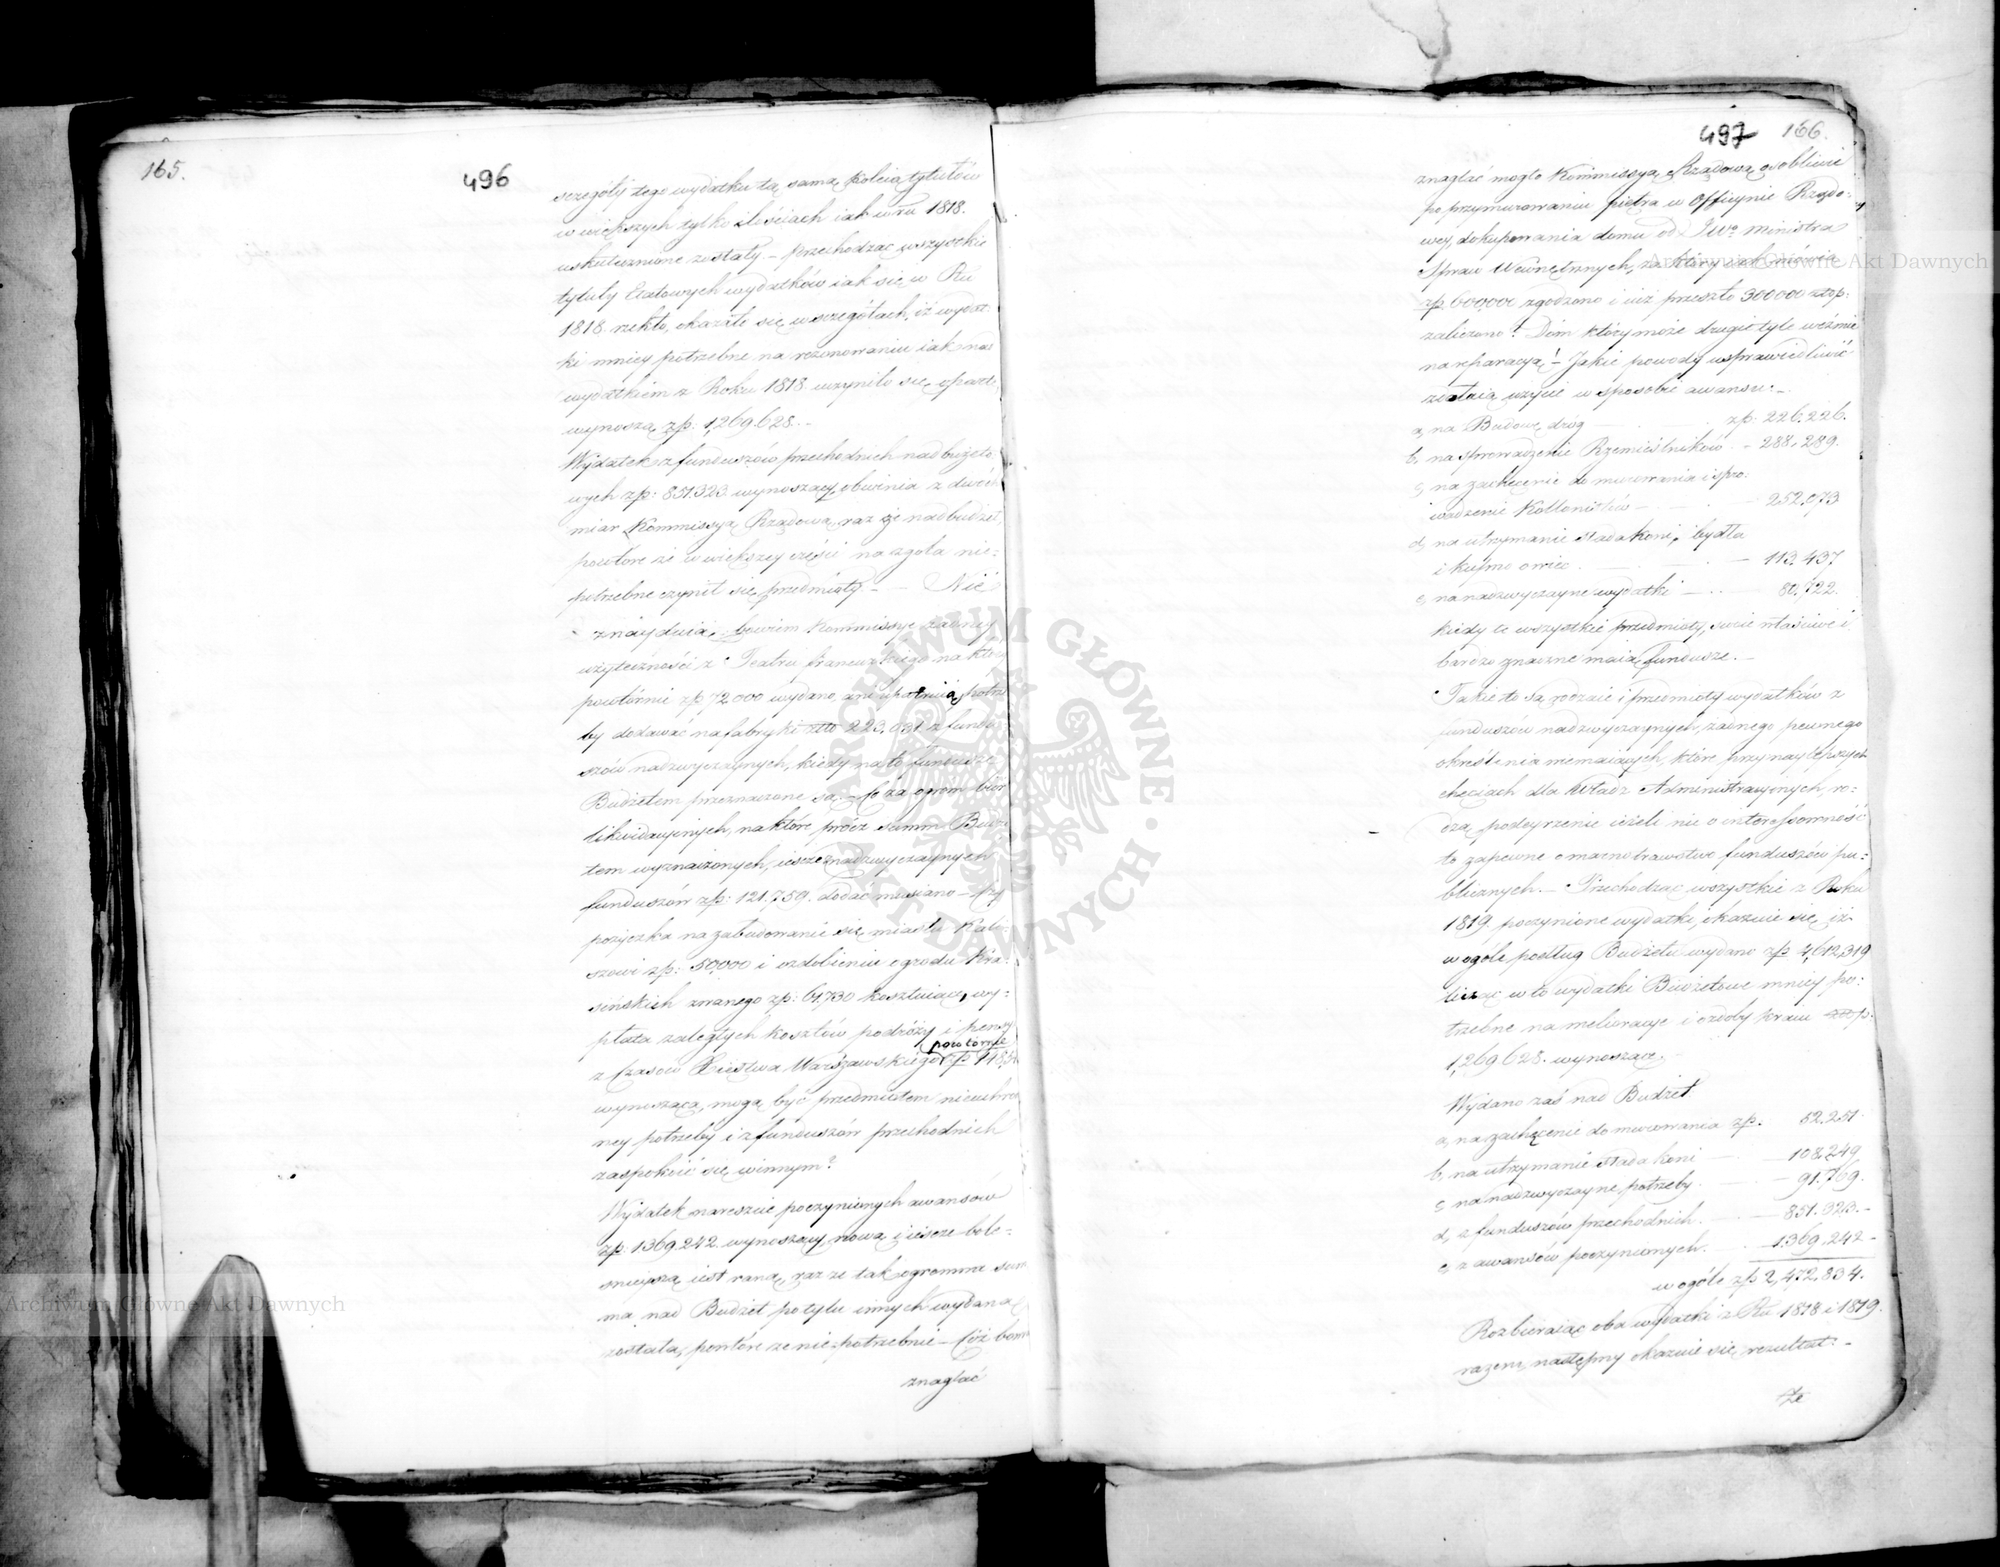 165.
496
szczegóły tego wydatku tą samą koleią tytułów
w większych tylko ilościach iak w ru 1818.
uskutecznione zostały. – Przechodząc wszystkie
tytuły Etatowych wydatków iak się w Ru
1818. rzekło, okazałe się w szczegółach, iż wydat:
ki mniey potrzebne na rezonowaniu iak nad
wydatkiem z Roku 1818 uczyniło się oparte
wynoszą zp: 1,269.628. –
Wydatek z funduszów przechodnich nad budżeto
wych zp: 851.323. wynoszący obwinia z dwóch
miar Kommissyą Rządową, raz że nad budżet,
powtóre że w większey części na zgoła nie:
potrzebne czynił się przedmioty. – Nie
znayduią bowiem Kommissye żadney
użyteczności z Teatru francuzkiego na który
powtórnie zp 72,000 wydano, ani upatruią potrze
by dodawać na fabryki zło 223,031 z fundu
szów nadzwyczaynych, kiedy na to fundusze
Budżetem przeznaczone są. – Co za ogrom biór
likwidacyinych, na które prócz summ Budże
tem wyznaczonych, ieszcze z nadzwyczaynych
funduszów zp: 121.759. dodać musiano – Czy
pożyczka na zabudowanie się miastu Kali:
szowi zp: 50,000 i ozdobienie ogrodu Kra:
sińskich zwanego zp: 61,730 kosztuiące, wy:
płata zaległych kosztów podróży i pensy
powtórnie
z czasów Xięstwa Warszawskiego zp 118,5
wynosząca, mogą być przedmiotem nieuchro
ney potrzeby i z funduszów przechodnich
zaspokoić się winnym?
Wydatek nareszcie poczynionych awansów
zp: 1369.242. wynoszący nową i ieszcze bole:
śnieyszą iest raną, raz że tak ogromna sum
ma nad Budżet po tylu innych wydana
została, powtóre że nie potrzebnie – Cóż bowi
znaglać
497 166.
znaglać mogło Kommissyą Rządową osobliwie
po przymurowaniu piętra w Officynie Rządo:
wey, dokupowania domu od JWo Ministra
Spraw Wewnętrznych, za który iak mówią
zp 600,000 zgodzono i iuż przeszło 300000 złop:
zaliczono? Dom który może drugie tyle weźmie
na reparacyą! – Jakie powody usprawiedliwić
zdołaią użycie w sposobie awansu: –
a, na Budowę dróg – zp: 226.226.
b, na sprowadzenie Rzemieślników – 288,289.
c, na zachęcenie do murowania i spro:
wadzenie Kollonistów – 252.073
d, na utrzymanie stada koni, bydła
i kupno owiec – 113.437
e, na nadzwyczayne wydatki – 80,722.
kiedy te wszystkie przedmioty, swoie właściwe i
bardzo znaczne maią fundusze. –
Takie to są rodzaie i przedmioty wydatków z
funduszów nadzwyczaynych, żadnego pewnego
określenia niemaiących, które przy naylepszych
chęciach dla Władz Administracyinych, ro:
dzą podeyrzenie ieżeli nie o interessowność
to zapewne o marnotrawstwo funduszów pu:
blicznych. – Przechodząc wszystkie z Roku
1819. poczynione wydatki, okazuie się, iż
w ogóle podług Budżetu wydano zp 4,612,319
licząc w to wydatki Budżetowe mniey po:
trzebne na melioracye i ozdoby kraiu złp:
1,269.628. wynoszące. –
Wydano zaś nad Budżet
a, na zachęcenie do murowania zp. 52.251
b, na utrzymanie stada koni – 108,249
c, na nadzwyczayne potrzeby – 91.769.
d, z funduszów przechodnich – 851.323. –
e, z awansów poczynionych – 1.369,242 –
w ogóle zp 2,472,834.
Rozbieraiąc oba wydatki z Ru 1818 i 1819.
razem, następny okazuie się rezultat: –
Że
ARCHIWUM GŁÓWNE · AKT DAWNYCH ·
Archiwum Główne Akt Dawnych
Archiwum Główne Akt Dawnych